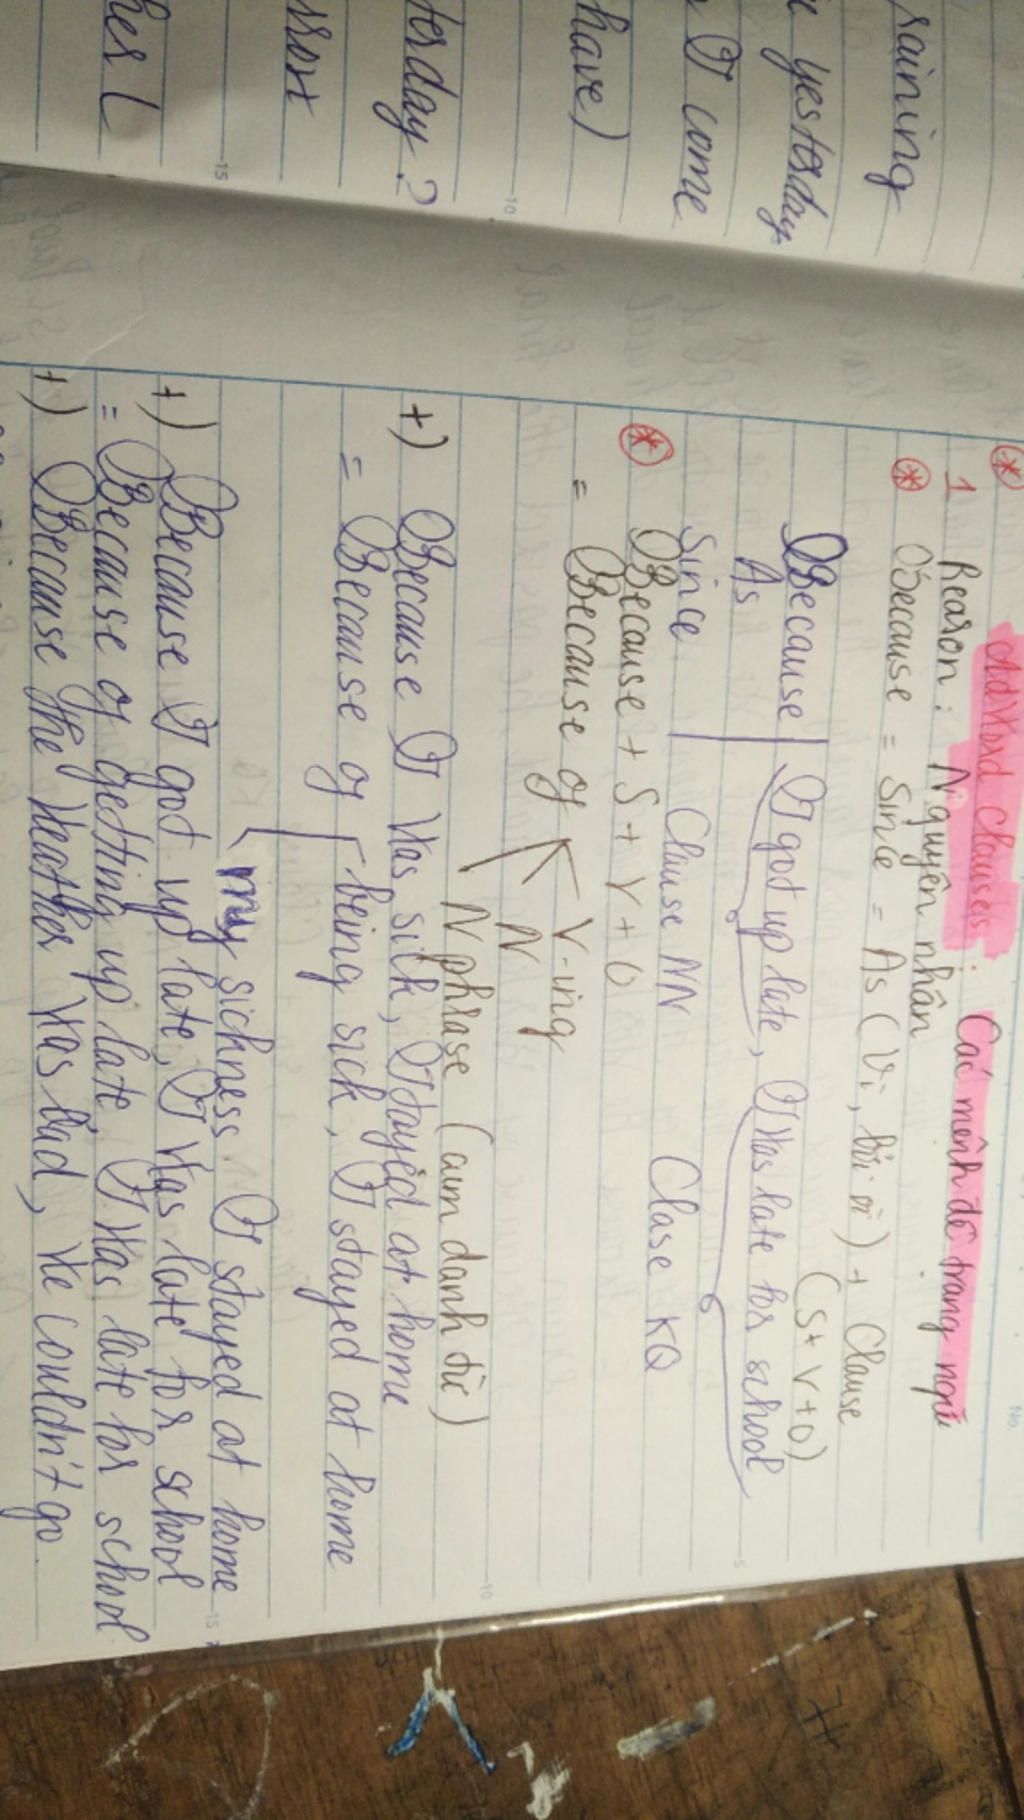 raining
yesterday
I come
have)
terday?
her (
No.
* Adverd clauses: Các mệnh đề trang ngữ
1 Reason: Nguyên nhân
* Because = Since = As (Vì, bởi vì) + Clause
(S+V+O)
Because I got up late, I was late for school
As
Since Clause NN Clase KQ
* Because + S + V + O
= Because of V-ing
N
N phrase (cụm danh từ)
+) Because I was sick, I stayed at home
= Because of being sick, I stayed at home
my sickness I stayed at home
+) Because I got up late, I was late for school
= Because of getting up late, I was late for school
+) Because the weather was bad, we couldn't go.
5
10
15
10
15